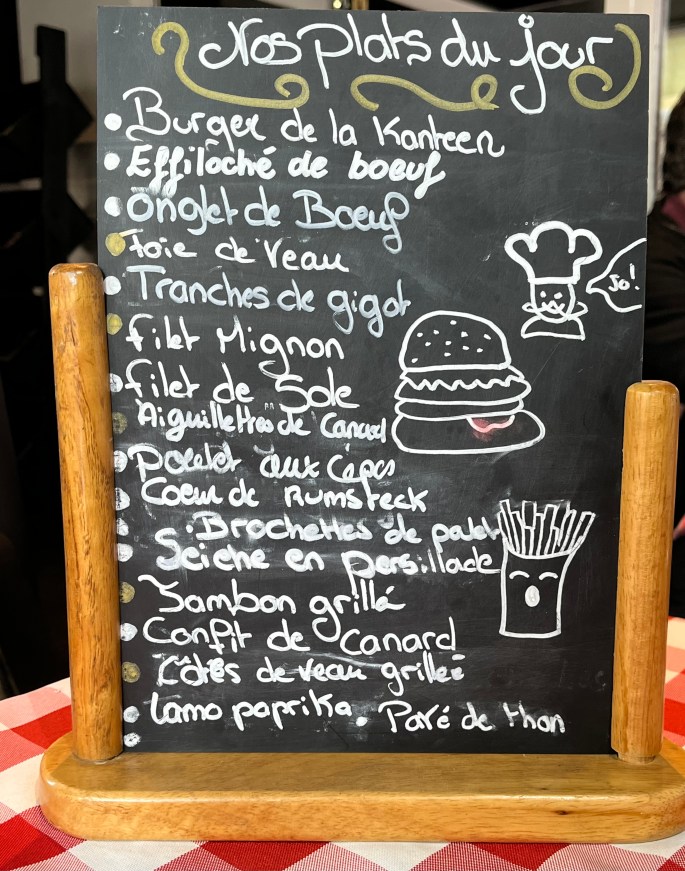 Nos plats du jour
• Burger de la Kanteen
• Effiloché de boeuf
• Onglet de Boeuf
• Foie de Veau
• Tranches de gigot
• filet Mignon
• filet de Sole
• Aiguillettes de Canard
• Poulet aux Cèpes
• Coeur de Rumsteck
• Brochettes de poulet
• Seiche en persillade
• Jambon grillé
• Confit de canard
• Côtes de veau grillée
• Lomo paprika • Pavé de thon
Jo!